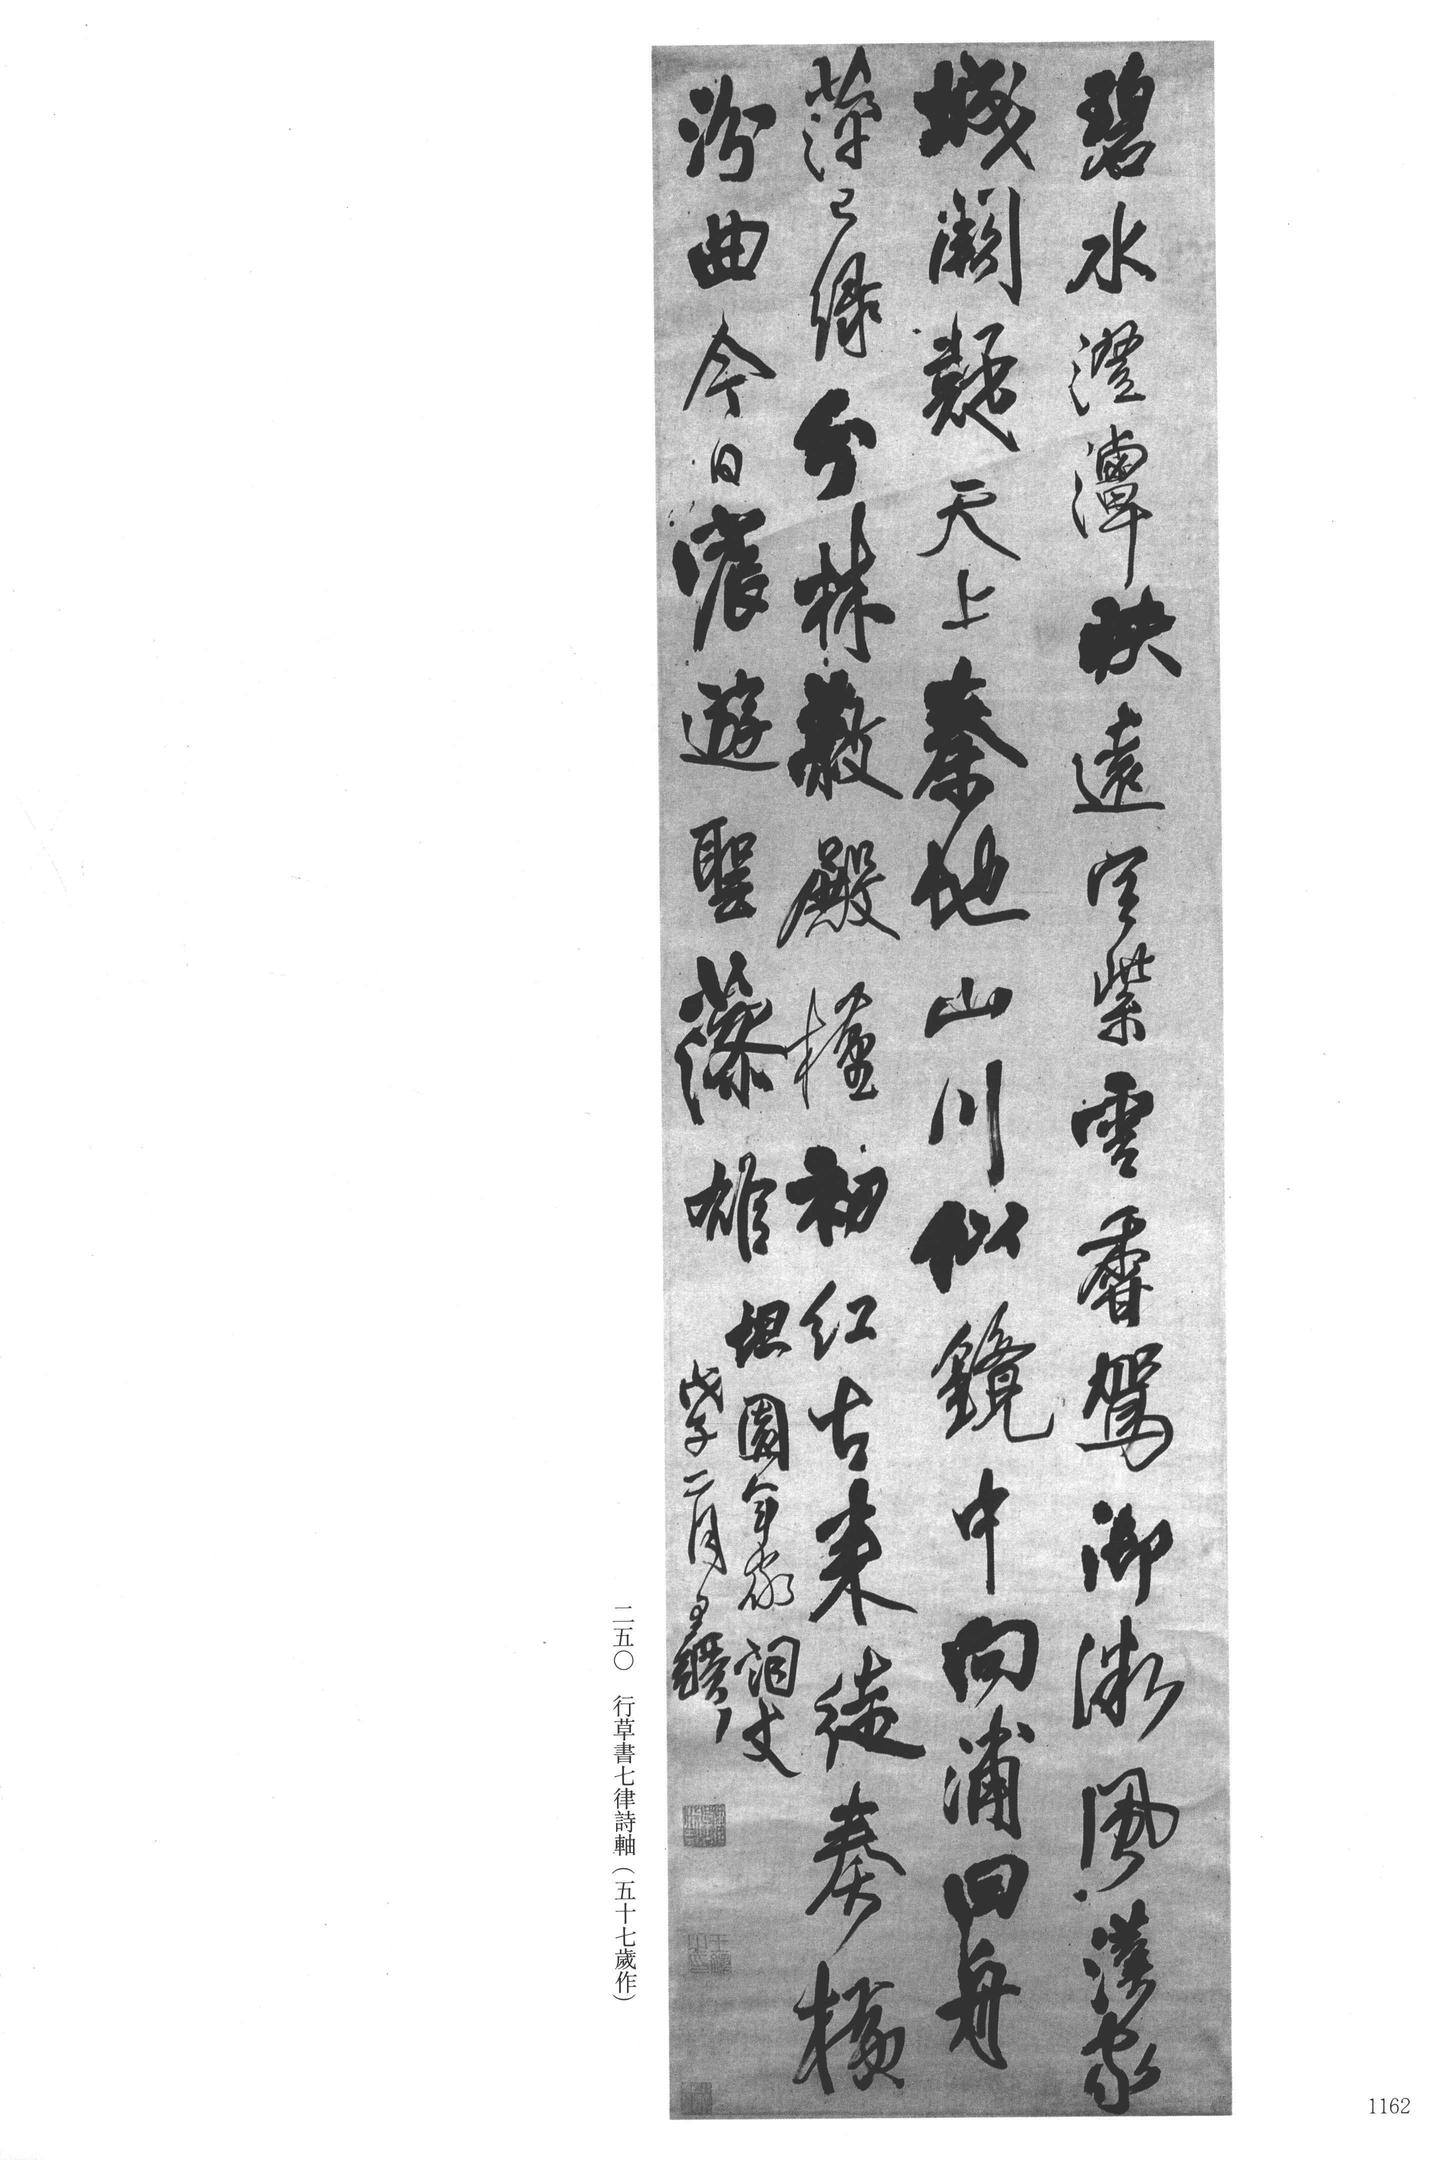 碧水澄潭映遠空紫雲香駕御微風漢家
城闕疑天上秦地山川似鏡中向浦回舟
萍已綠分林蔽殿槿初紅古來徒奏橫
汾曲今日宸遊聖藻雄
坦園年家詞丈
戊子二月王鐸
二五〇 行草書七律詩軸（五十七歲作）
1162